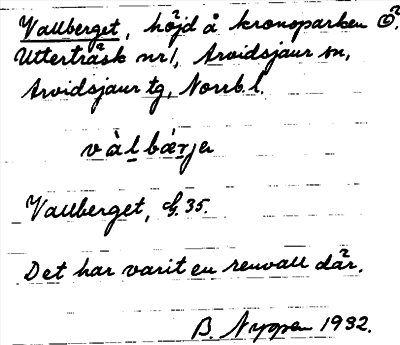 Vallberget, höjd å kronoparken Ö.
Utterträsk nr 1, Arvidsjaur sn,
Arvidsjaur tg, Norrb. l.
vàl bær̀jer
Vallberget, 35.
Det har varit en renvall där.
B. Nyppen 1932.